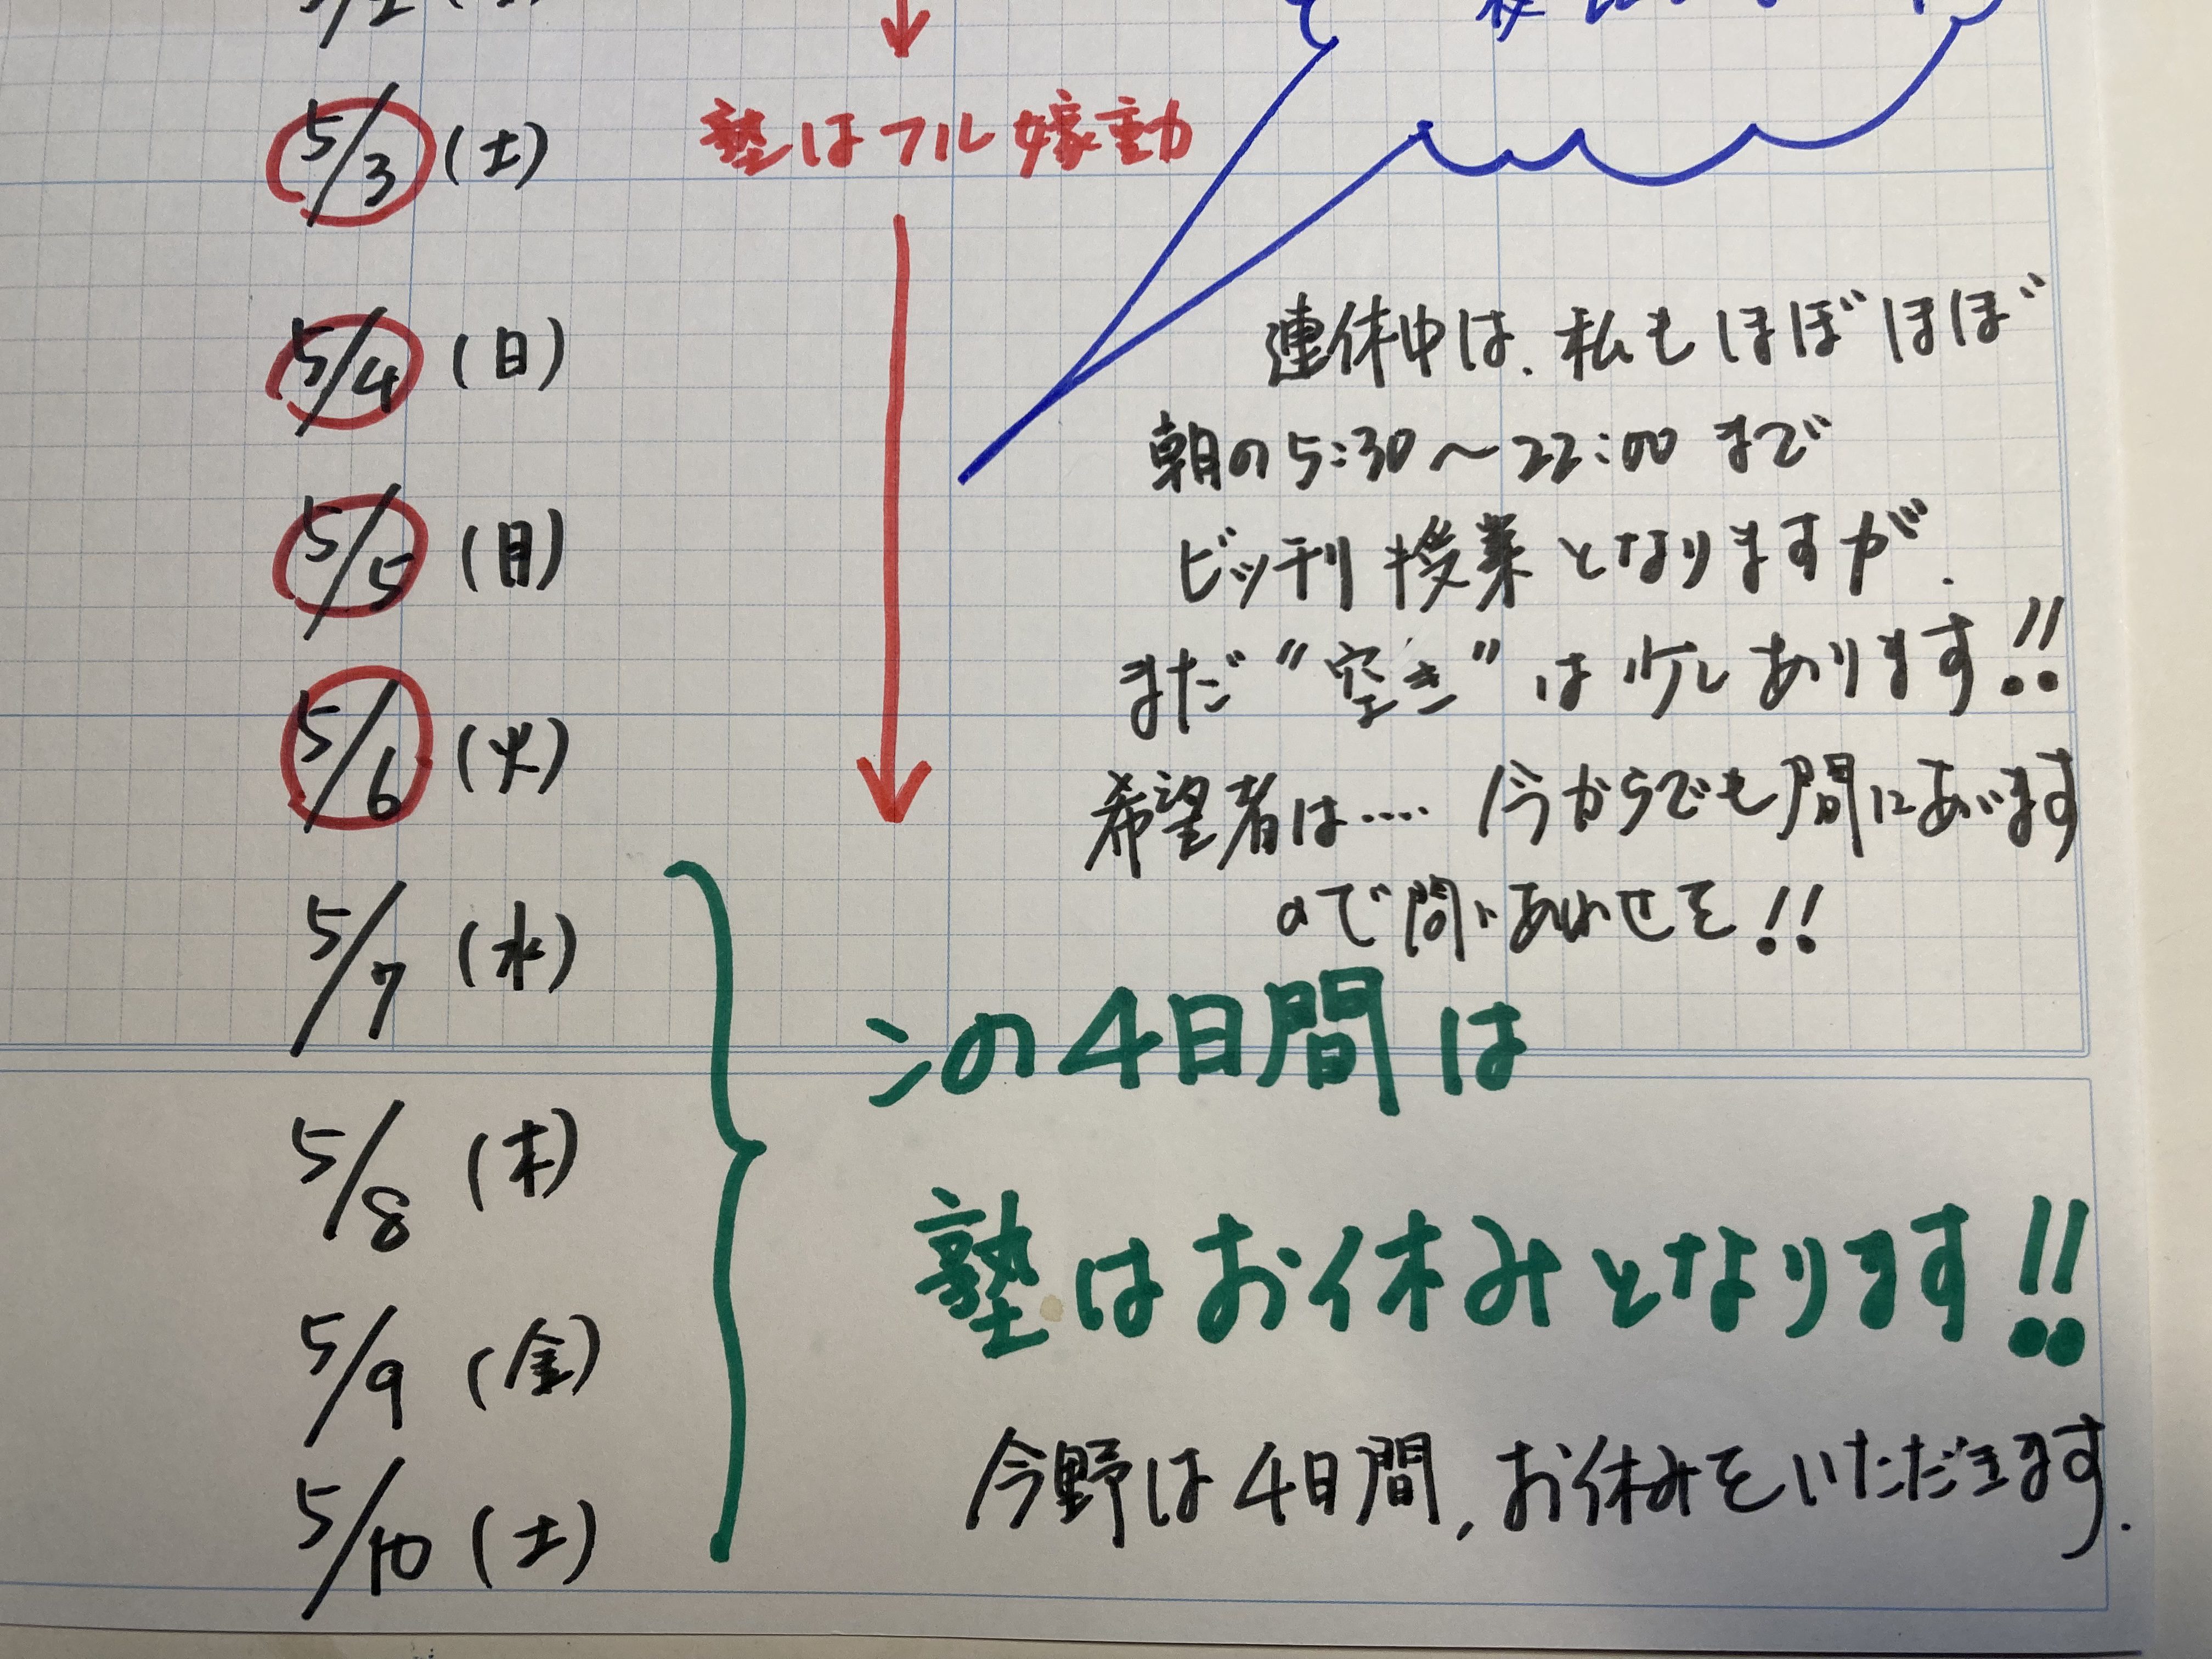 5/3 (土) 塾はフル嫁動
5/4 (日)
5/5 (月)
5/6 (火)
連休中は、私もほぼほぼ
朝の5:30〜22:00まで
ビッチリ授業となりますが、
まだ"空き"は少しあります!!
希望者は…‥ 今からでも間にあいます
ので問いあわせを!!
5/7 (水)
5/8 (木)
5/9 (金)
5/10 (土)
この4日間は
塾はお休みとなります!!
今野は4日間、お休みをいただきます.